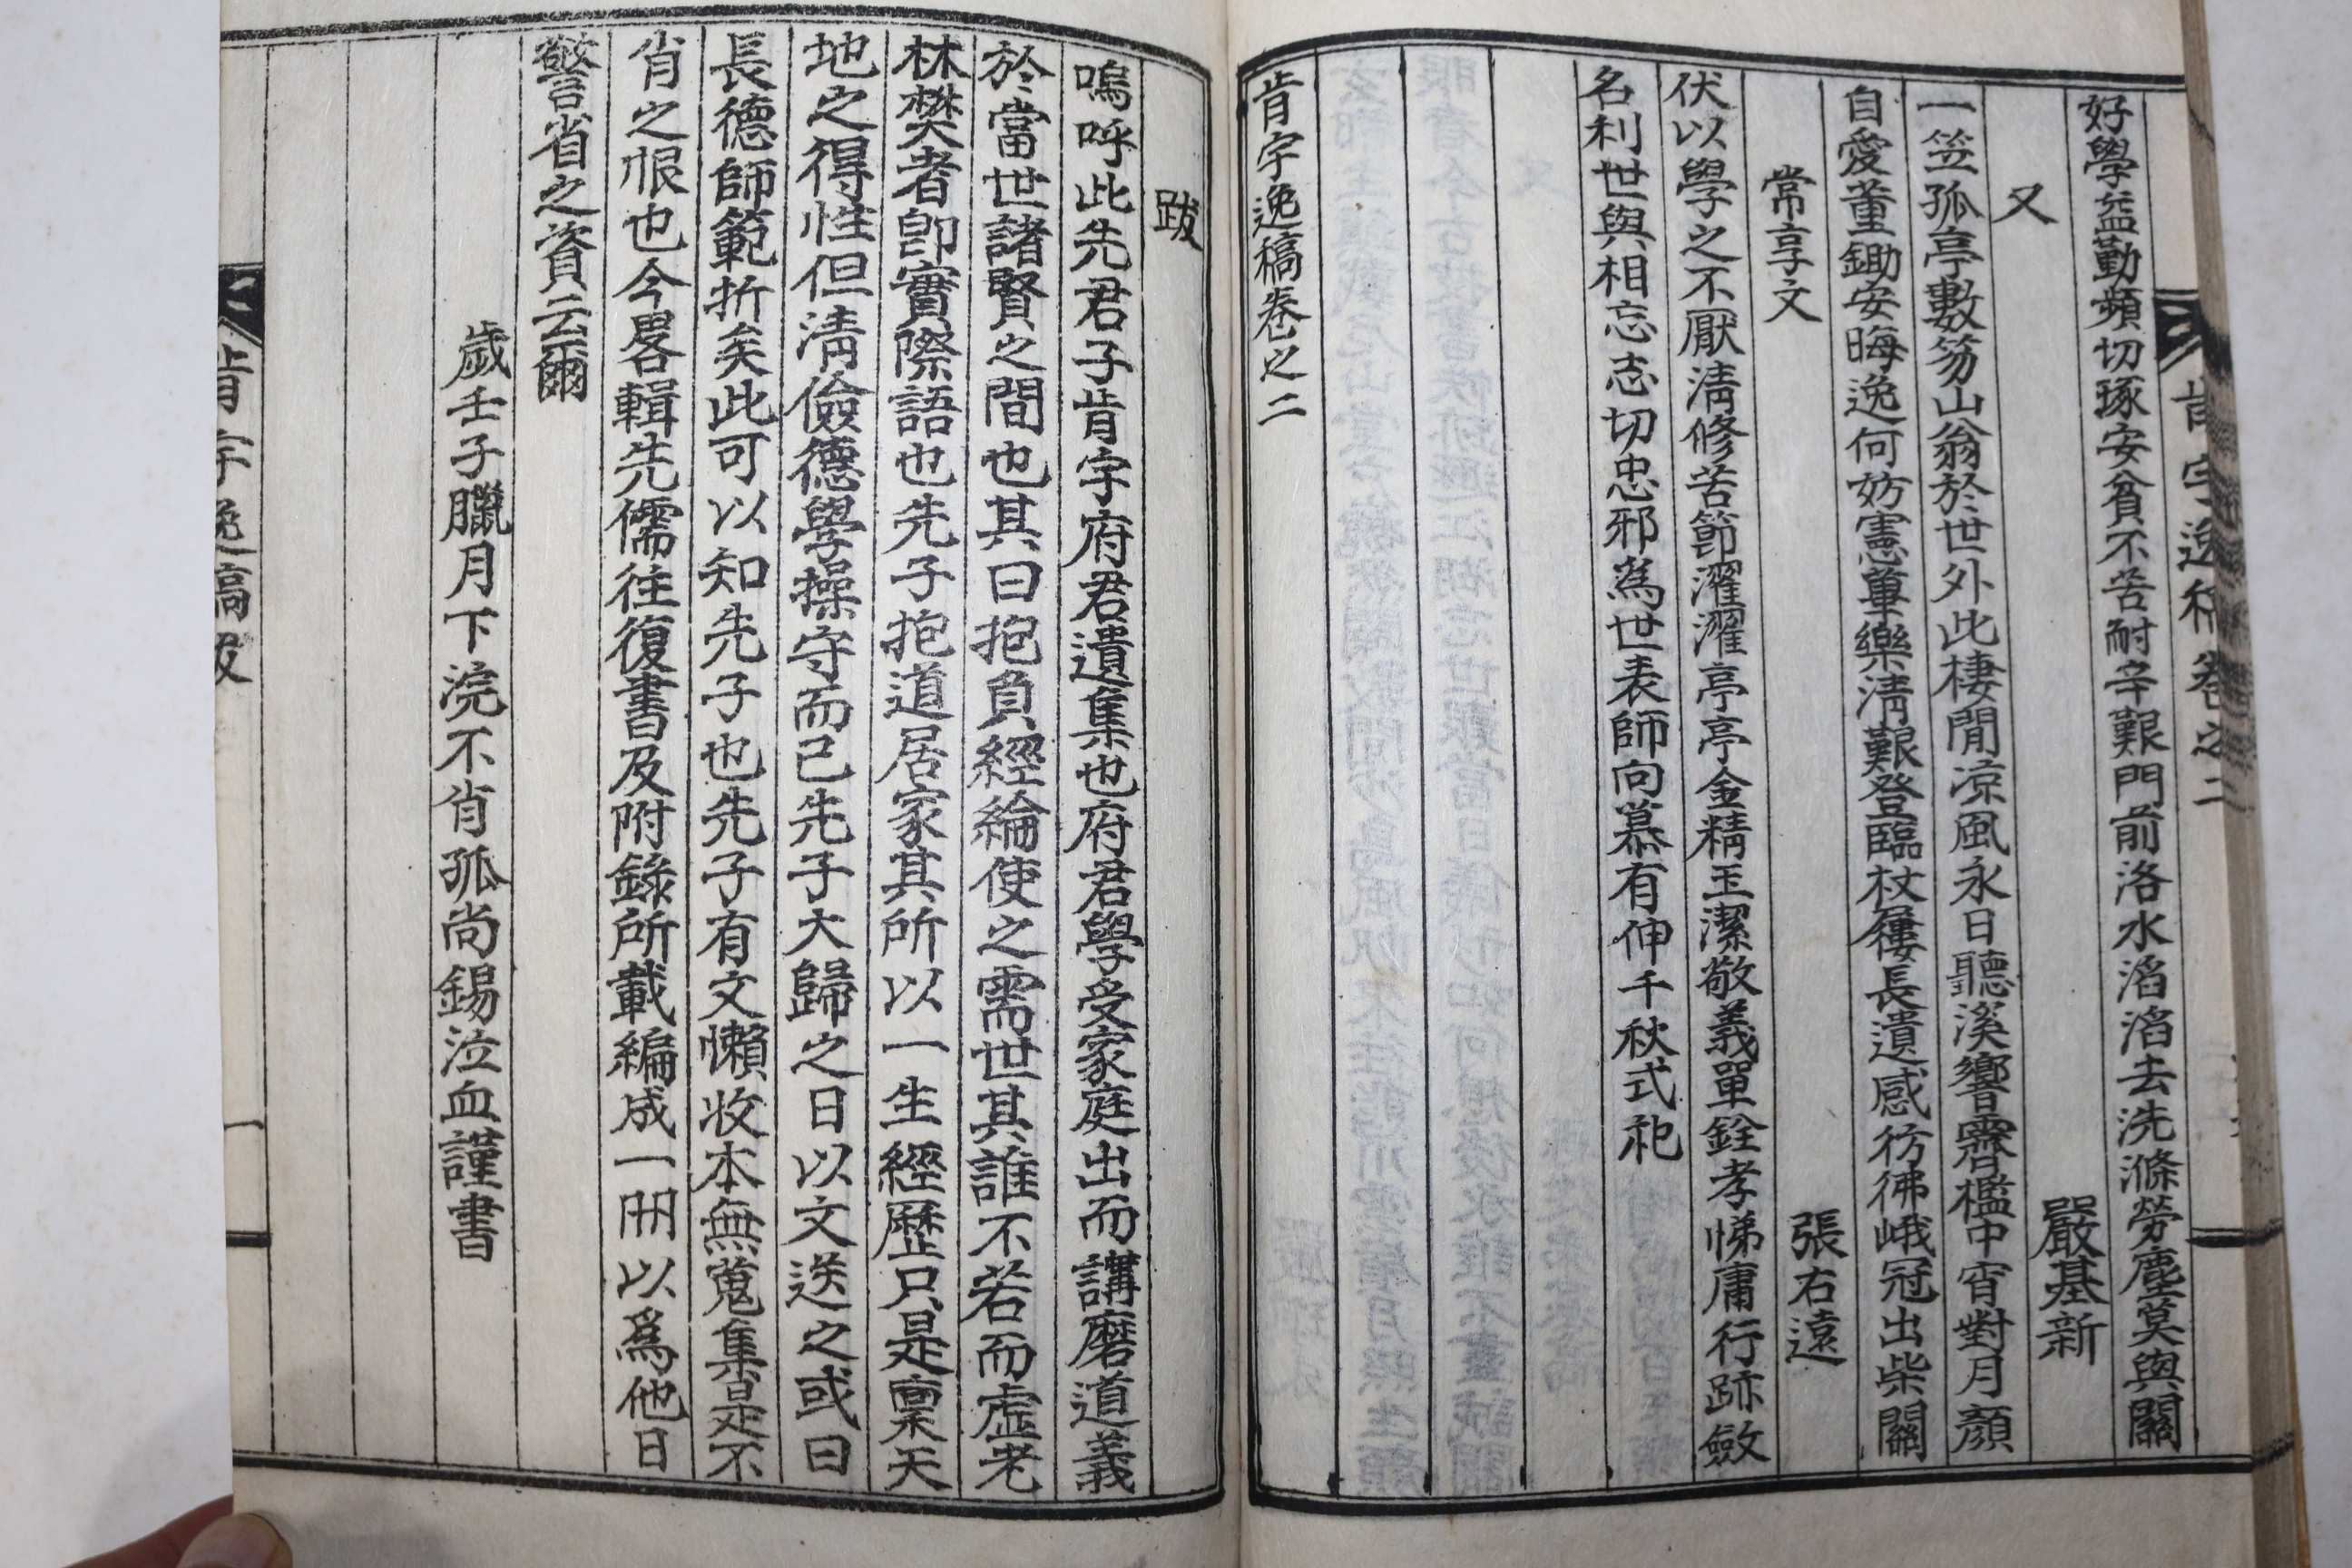 肯宇逸稿卷之二
好學益勤蘋切琢安貧不苦耐辛艱門前洛水滔滔去洗滌勞塵莫與關
又
嚴基新
一笠孤亭數笏山翁於世外此棲閒凉風永日聽溪響霽檻中宵對月顏
自愛董鋤安晦逸何妨憲蓽樂淸艱登臨杖屨長遺感彷彿峨冠出柴關
常享文
張右遠
伏以學之不厭淸修苦節濯濯亭亭金精玉潔敬義單銓孝悌庸行跡斂
名利世與相忘志切忠邪爲世表師向慕有伸千秋式祀
肯宇逸稿卷之二
跋
嗚呼此先君子肯宇府君遺集也府君學受家庭出而講磨道義
於當世諸賢之間也其曰抱負經綸使之需世其誰不若而虛老
林樊者卽實際語也先子抱道居家其所以一生經歷只是稟天
地之得性但淸儉德學操守而已先子大歸之日以文送之或曰
長德師範折矣此可以知先子也先子有文懶收本無蒐集是不
肖之恨也今畧輯先儒往復書及附錄所載編成一册以爲他日
警省之資云爾
歲壬子臘月下浣不肖孤尚錫泣血謹書
肯宇逸稿跋
一